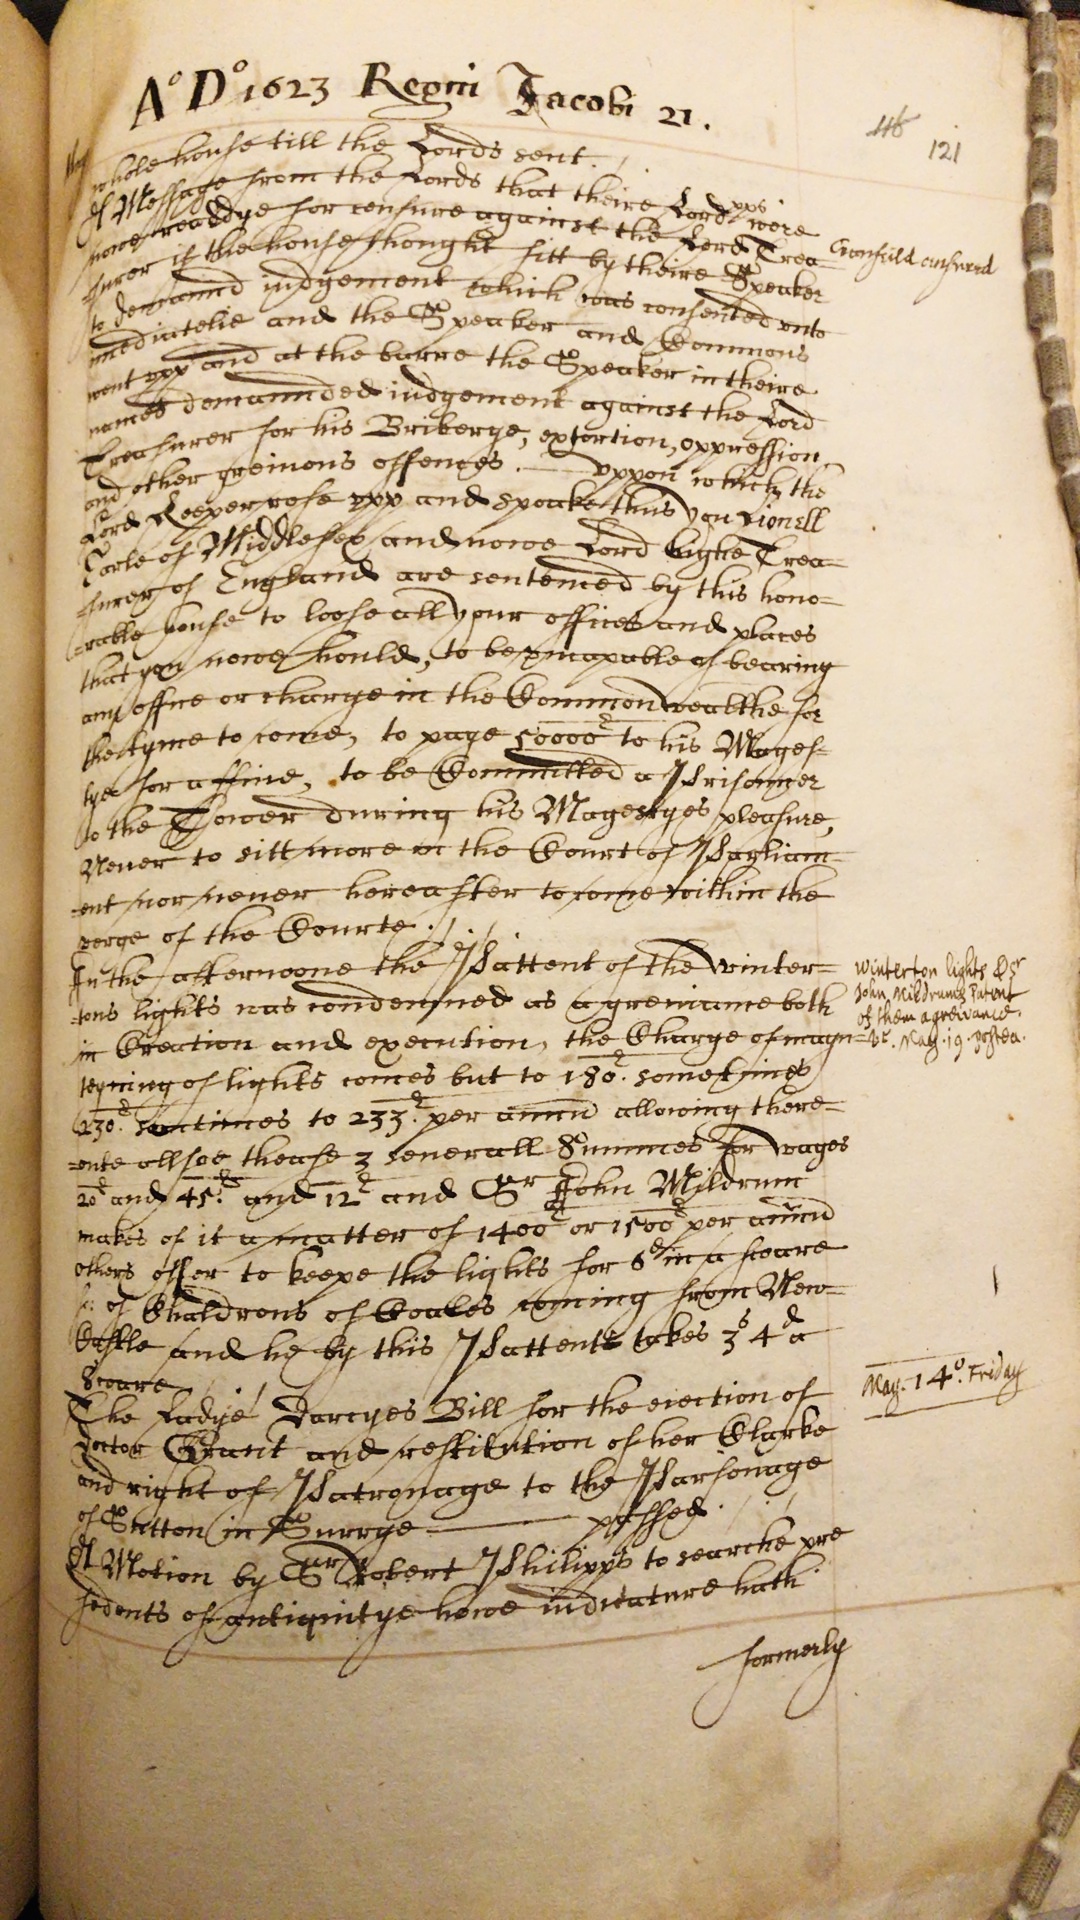 A⁰ D⁰ 1623 Regni Jacobi 21.
116
121
whole house till the Lords sent.
A Message from the Lords that theire Lordpps were
nowe readdye for censure against the Lord Trea-
surer if the house thought fitt by theire Speaker
to demannd iudgement which was consented vnto
imediatelie and the Speaker and Commons
went vpp and at the barre the Speaker in theire
names demannded iudgement against the Lord
Treasurer for his Briberye, extortion, oppression,
and other greiuous offences. — vppon which the
Lord Keeper rose vpp and spoake thus you Lionell
Earle of Middlesex and nowe Lord highe Trea=
=surer of England are sentenced by this hono=
=rable house to loose all your offices and places
that you nowe hould, to be vncapable of bearing
any office or charge in the Common wealthe for
the tyme to come, to paye 50000ˡ to his Mages=
tye for a ffine, to be Committed a Prisonner
to the Tower during his Magestyes pleasure,
Neuer to sitt more in the Court of Parliam=
=ent nor neuer hereafter to come within the
verge of the Courte.
Cranfeild censured
In the afternoone the Pattent of the winter=
=tons lights was condemned as a greiuance both
in Creation and execution, the Charge of mayn=
teyning of lights comes but to 180ˡ. sometimes
230ˡ. somtimes to 233ˡ. per annu allowing there=
=vnto allsoe thease 3 seuerall Summes for wages
20ˡ and 45ˡ. and 12ˡ and Sr John Mildrum
makes of it a matter of 1400ˡ or 1500ˡ per annu
others offer to keepe the lights for 6ᵈ in a scoare
of Chaldrons of Coales coming from New=
Castle and he by this Pattente takes 3ˢ 4ᵈ a
Scoare
Winterton lights & Sr
John Mildrums Patent
of them a greivance.
vt. May. 19. postea.
May. 14⁰. Friday
The Ladye Darcyes Bill for the eiection of
Doctor Grant and restitution of her Clarke
and right of Patronage to the Parsonage
of Sutton in Surrye — passed.
A Motion by Sr Robert Philipps to searche pre
sedents of antiquitye howe iudicature hath
formerly